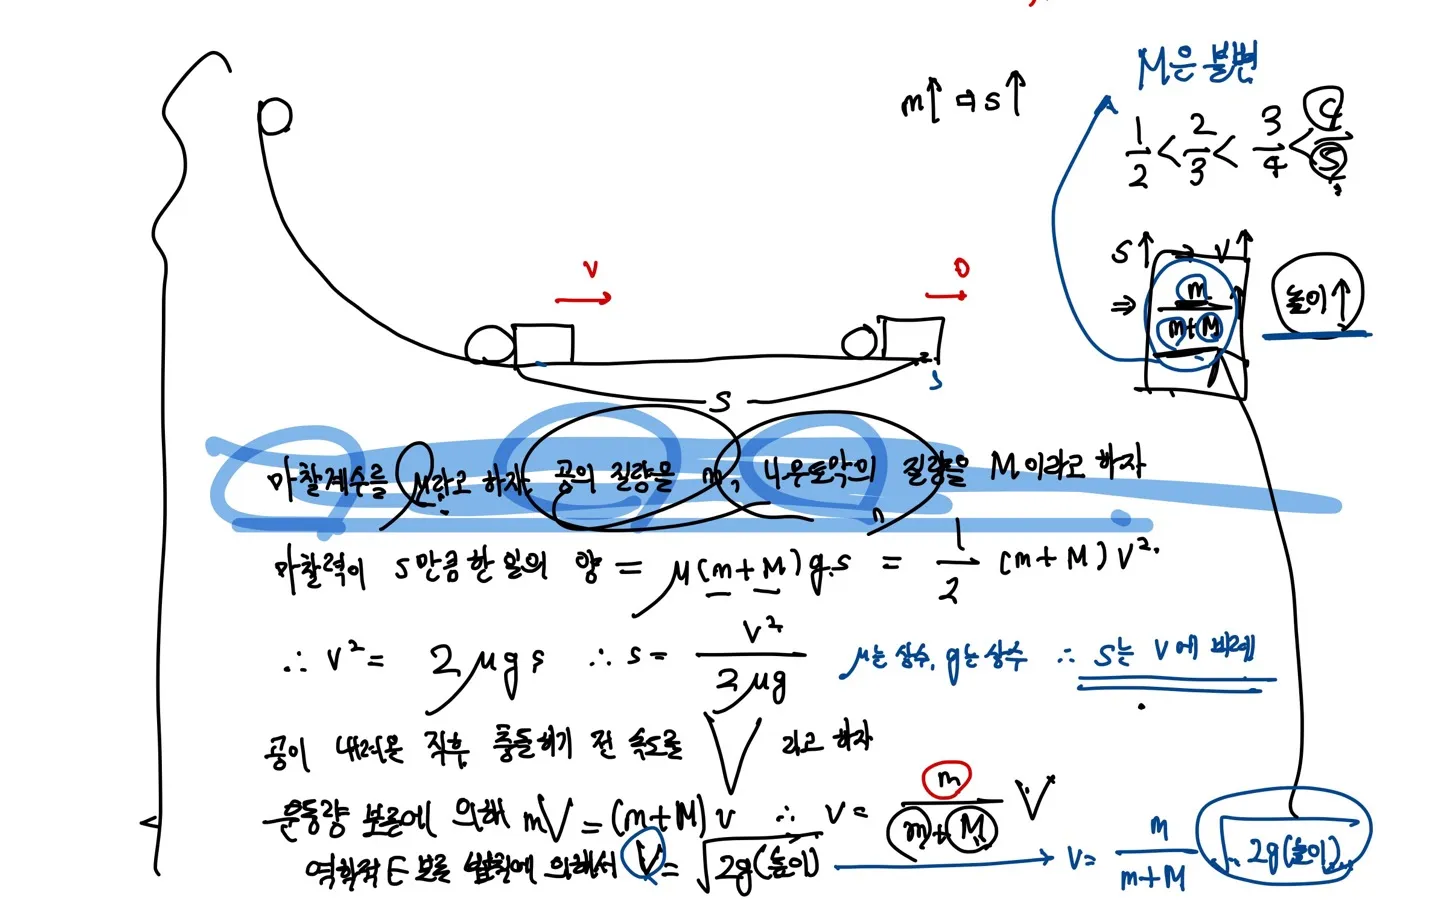 M은 불변
m↑ ⇒ s↑
1/2 < 2/3 < 3/4 < 4/5
S↑ ⇒ V↑
⇒ m/(m+M) 높이↑
V
0
S
마찰계수를 μ라고 하자. 공의 질량을 m, 나무토막의 질량을 M이라고 하자
마찰력이 s만큼 한 일의 양 = μ(m+M)g.s = 1/2 (m+M)V².
∴ V² = 2μgs ∴ s = V²/2μg μ는 상수, g는 상수 ∴ S는 V에 비례
공이 내려온 직후, 충돌하기 전 속도를 V 라고 하자
운동량 보존에 의해 mV = (m+M)v ∴ v = m/(m+M) V
역학적 E 보존 법칙에 의해서 V = √2g(높이) → v = m/(m+M) √2g(높이)